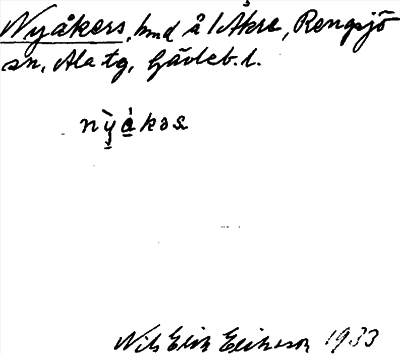 Nyåkers, hmd å 1 Åkre, Rengsjö
sn, Ala tg, Gävleb. l.
nỳ̠å̠̀kəs
Nils Erik Eriksson 1933